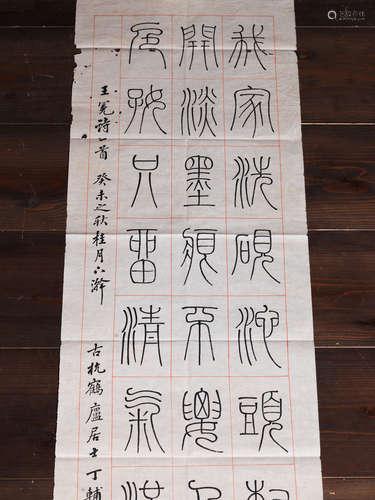 我家洗硯池頭
開淡墨痕不要
色好只留清氣
王冕詩一首 癸未之秋桂月六澣 古杭鶴廬居士丁輔